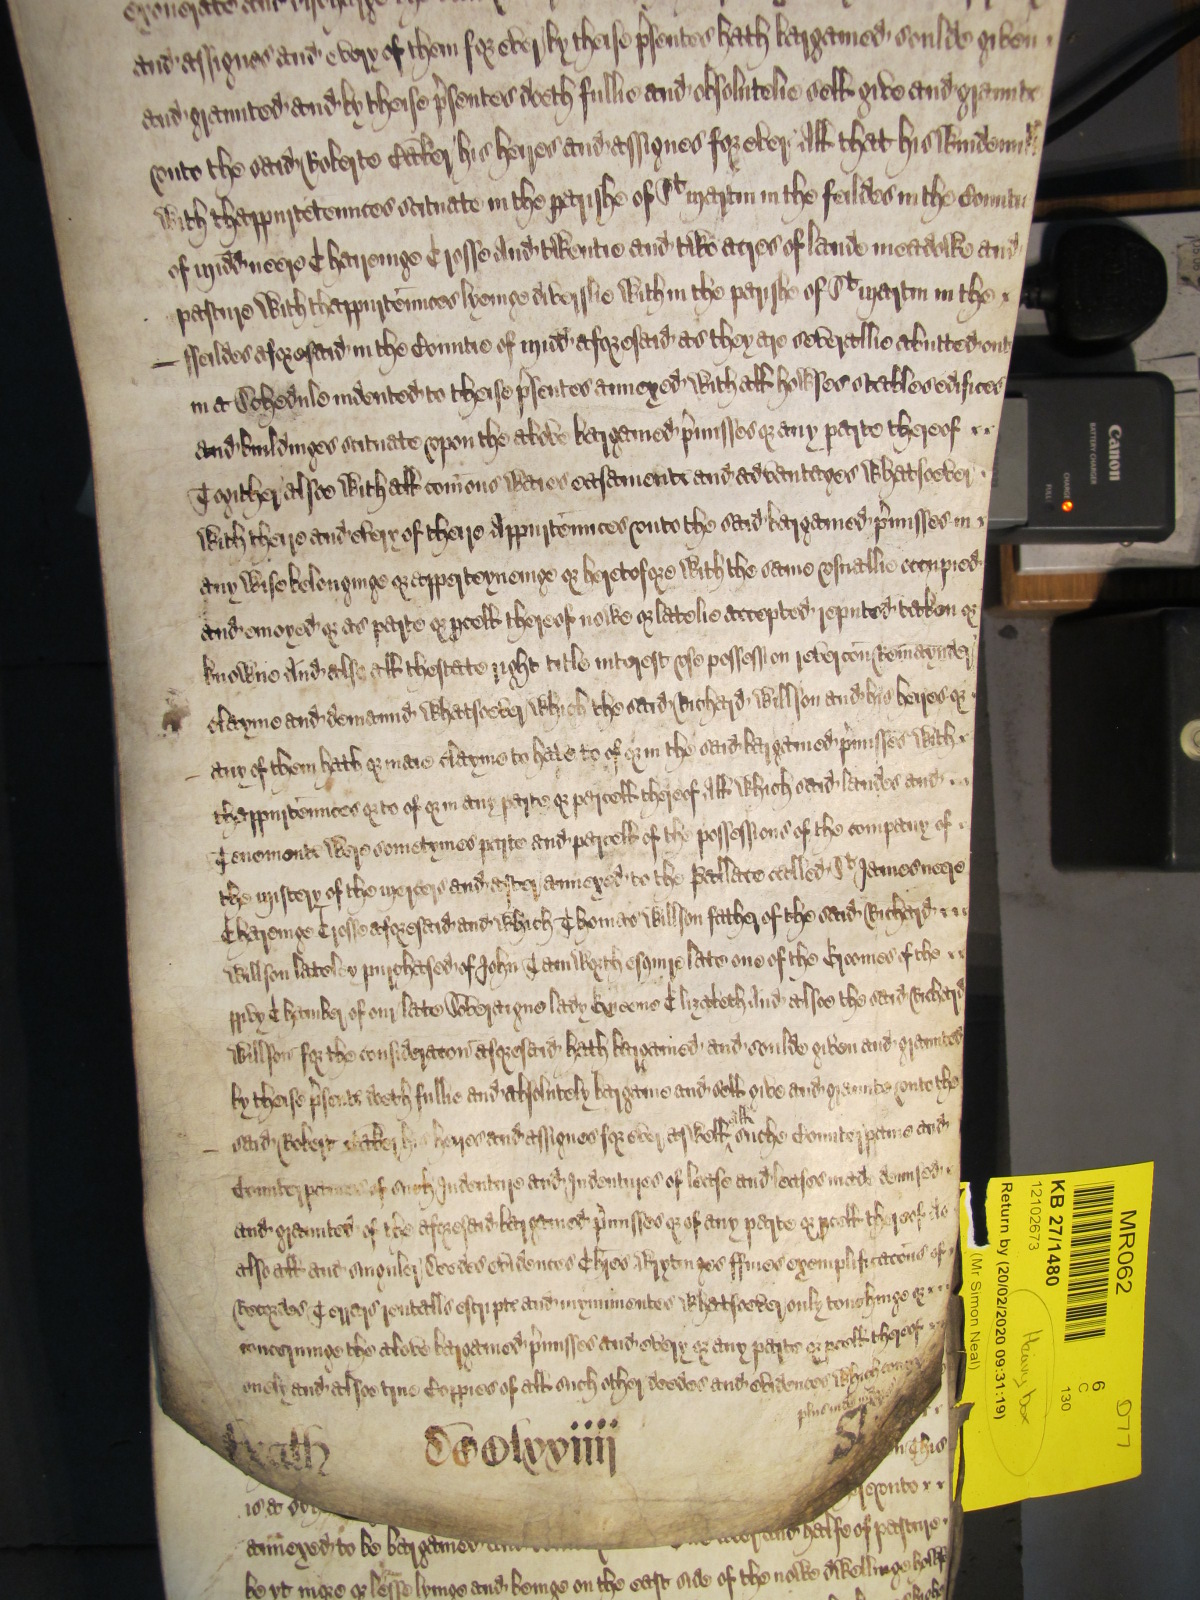 exonerate and discharge the
and assignes and every of them for ever by theise p̄sentes hath bargained soulde given
and graunted and by theise p̄sentes doeth fullie and absolutelie sell give and graunte
vnto the said Roberte Baker his heyres and assignes for ever All that his Windemill
With thappurteñnces scituate in the parishe of St martin in the feildes in the Countie
of midd neere Chareinge Crosse And twentie and two acres of lande meadowe and
pasture With thappurteñnces lyeinge diverslie Within the parishe of St martin in the
ffeildes aforesaid in the Countie of midd aforesaid as they are severallie abutted out
in a Schedule indented to theise p̄sentes annexed With all howses stables edifices
and buildinges scituate vpon the above bargained p̄misses or any parte thereof
Togither alsoe With all com̄ons Waies easamentes and advantages Whatsoever
With theire and every of theire Appurteñnces vnto the said bargained p̄misses in
any Wise belonginge or apperteyneinge or heretofore With the same vsuallie occupied
and enioyed or as parte or p̄cell thereof nowe or latelie accepted reputed taken or
knowne And also all thestate right title interest vse possession rever̄con Remaynder
clayme and demaund Whatsoever Which the said Richard Willson and his heires or
any of them hath or maie clayme to have to of or in the said bargained p̄misses With
thappurteñnces or to of or in any parte or parcell thereof All Which said landes and
Tenementes Were sometymes parte and parcell of the possessions of the company of
the mistery of the mercers and after annexed to the Pallace called St James neere
Chareinge Crosse aforesaid and Which Thomas Willson father of the said Richard
Willson lateley purchased of John Tamworth esquire late one of the Groomes of the
privy Chamber of our late Soveraigne lady Queene Elizabeth And alsoe the said Richard
Willson for the consideracon aforesaid hath bargained and soulde given and graunted
by theise p̄sentes doeth fullie and absolutely bargaine and sell give and graunte vnto the
said Robert Baker his heyres and assignes for ever aswell all suche Counterpane and
Counterpaines of such Indenture and Indentures of lease and leases made demised
and graunted of the aforesaid bargained p̄misses or of any parte or p̄cell thereof As
also all and singuler Deedes evidences Chres Wrytinges ffines exemplificacons of
Recordes Terrars rentalls escriptes and mynimentes Whatsoever only touchinge or
concerninge the above bargained p̄misses and every or any parte or p̄cell thereof
onely and alsoe true Coppies of all such other deedes and evidences Which
plus in
Dcclxviiij
This
is a
vnto
annexed to be bargained and halfe of pasture
be yt more or lesse lyinge and beinge on the east side of the nowe dwellinge howse
Canon
BATTERY CHARGER
CHARGE
FULL
MR062
D77
6
C
130
KB 27/1480
12102673
Heavy box
Return by (20/02/2020 09:31:19)
(Mr Simon Neal)